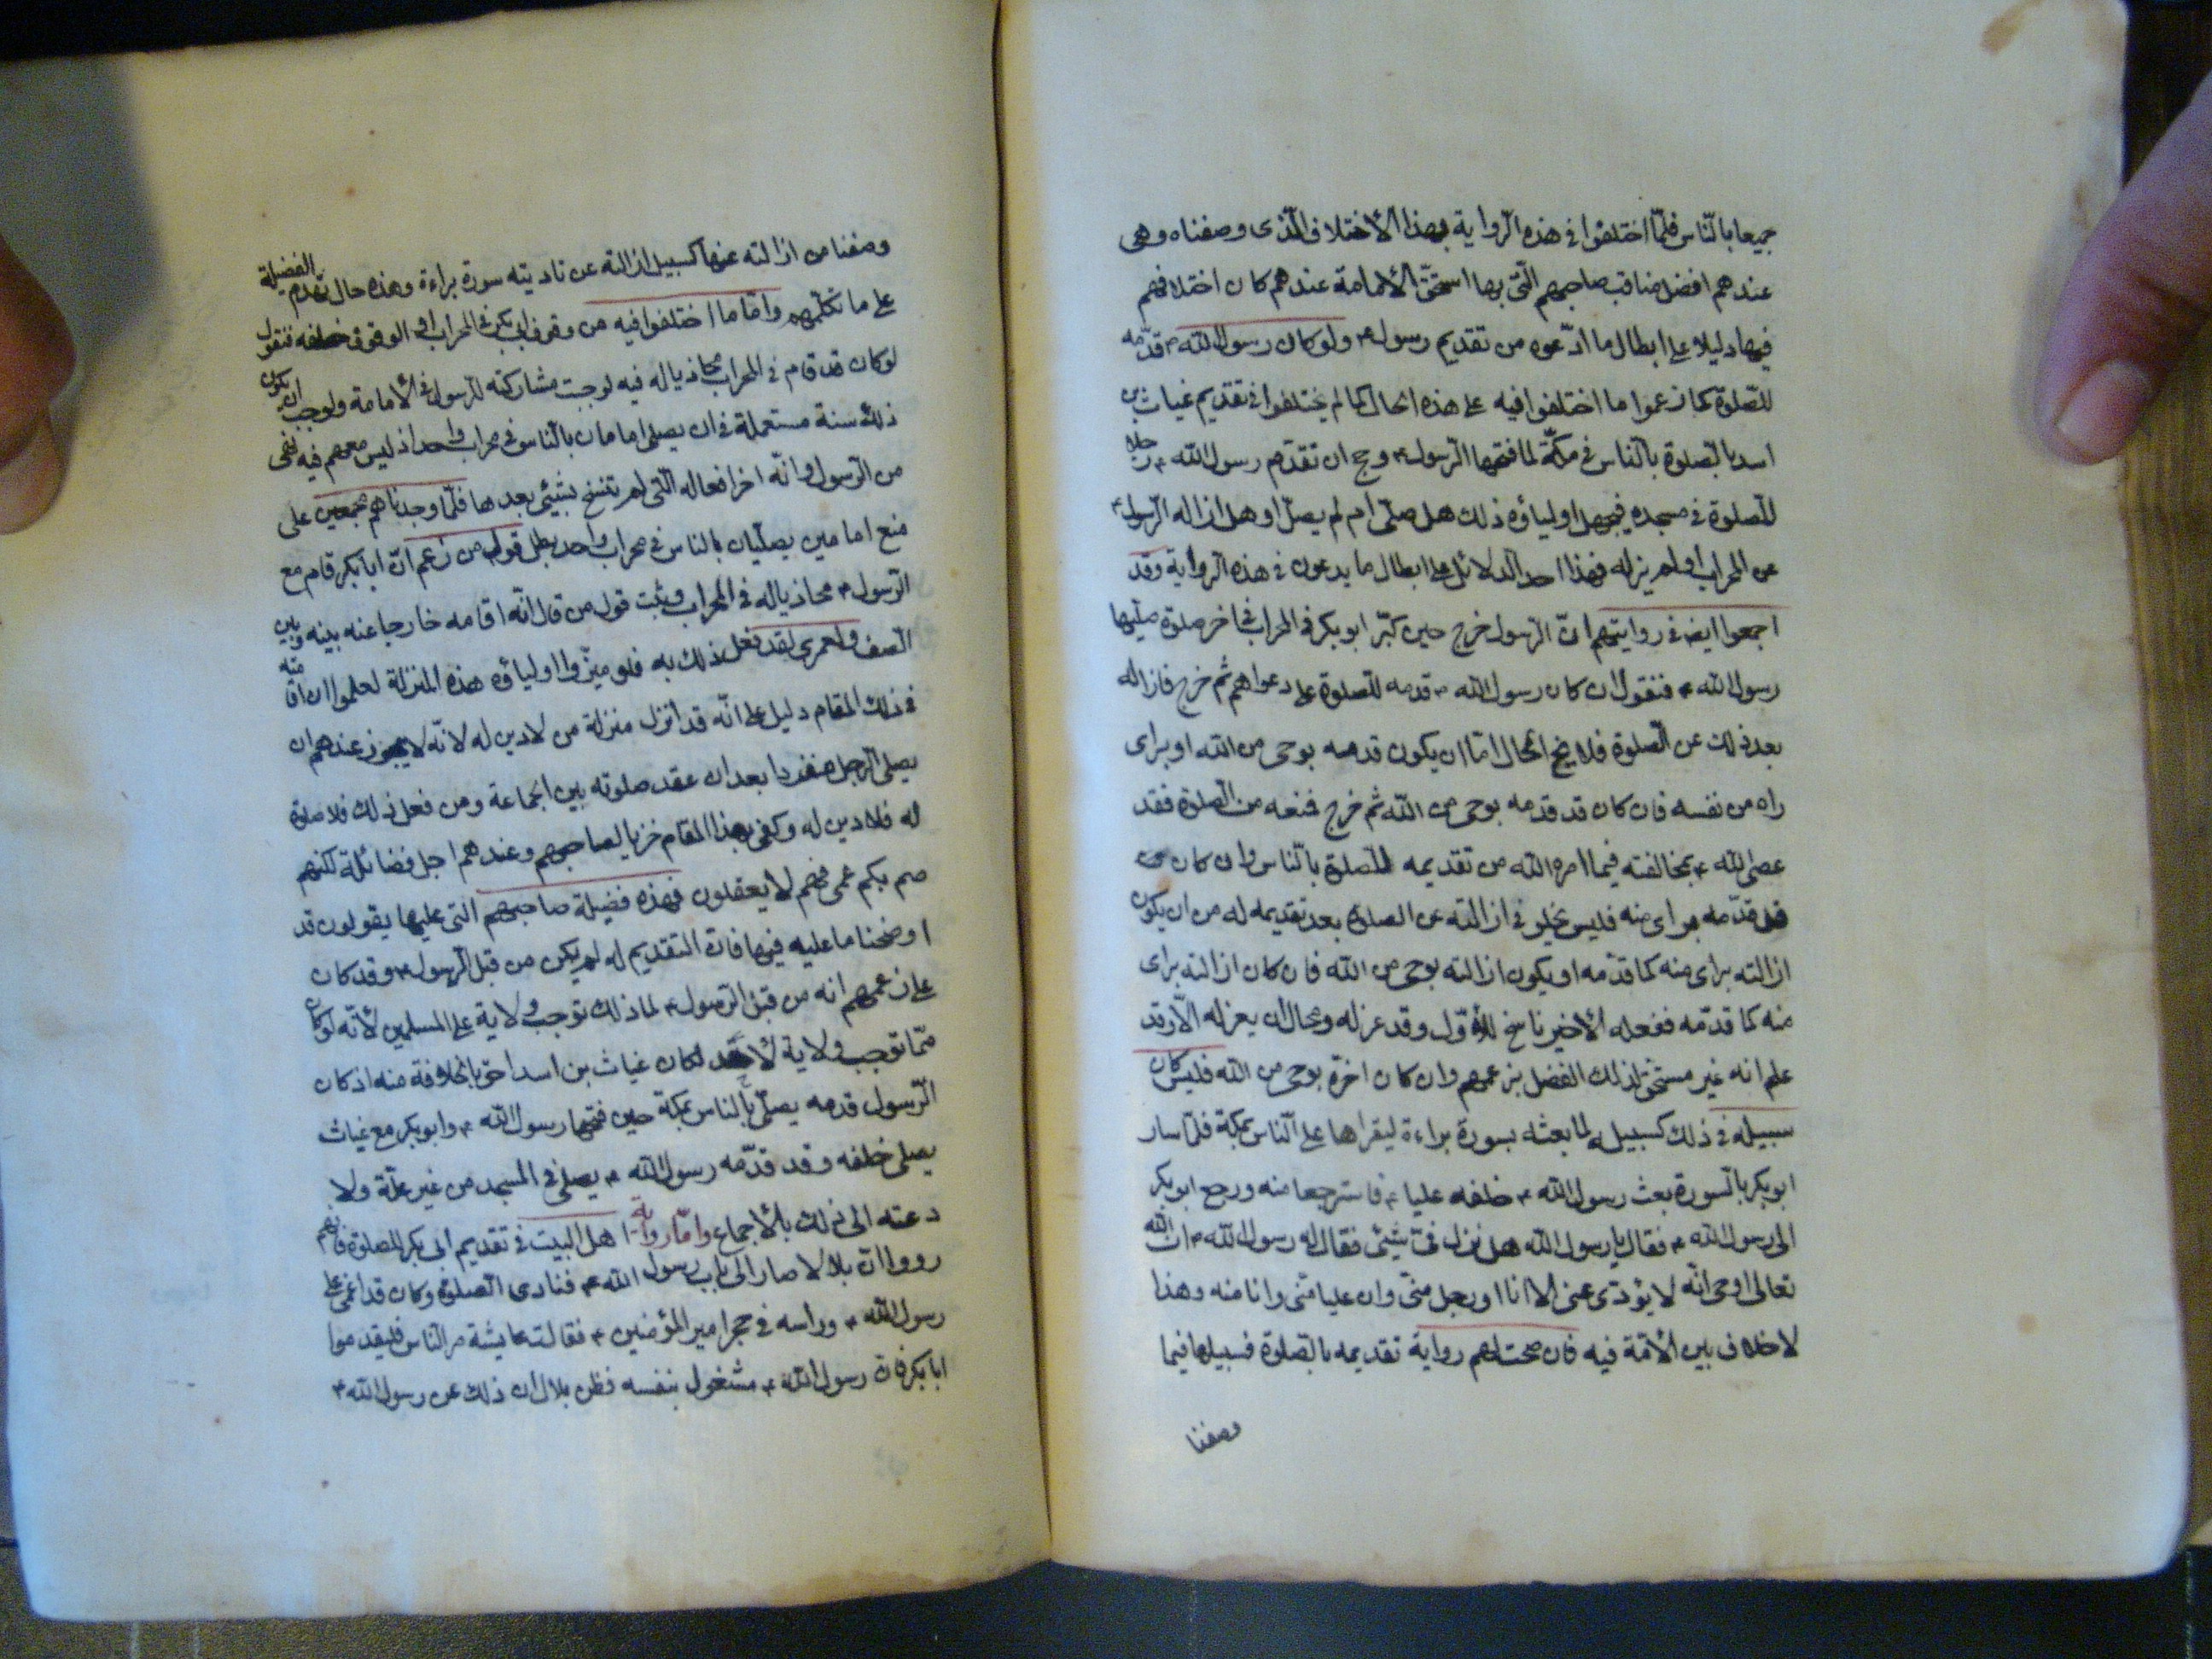 جميعا بالنّاس فلمّا اختلفوا فى هذه الرّواية بهذا الأختلاف الّذى وصفناه وهى
عندهم افضل مناقب صاحبهم الّتى بها استحقّ الأمامة عندهم كان اختلافهم
فيها دليلا على ابطال ما ادّعوه من تقديم رسول ۴ ولو كان رسول الله ۴ قدّمه
للصّلوة كما زعموا ما اختلفوا فيه على هذه الحال كما لم يختلفوا فى تقديم غياث بن
اسد بالصلوة بالناس فى مكّة لما فتحها الرّسول ۴ وهج ان تقدّم رسول الله ۴ رجلا
للصّلوة فى مسجده فيجهل اولياؤه ذلك هل صلّى ام لم يصلّ او هل ازاله الرّسول ۴
عن المحراب او لم يزله فهذا احد الدلائل على ابطال ما يدعون فى هذه الرواية وقد
اجمعوا ايضا فى روايتهم انّ الرّسول خرج حين كبّر ابو بكر فى المحراب فى اخر صلوة صلّيها
رسول الله ۴ فنقول ان كان رسول الله ۴ قدمه للصلوة على دعواهم ثم خرج فازاله
بعد ذلك عن الصّلوة فلا يخ الحال امّا ان يكون قدمه بوحى من الله او براى
راه من نفسه فان كان قد قدمه بوحى من الله ثم خرج فمنعه من الصّلوة فقد
عصى الله ۴ بمخالفته فيما امره الله من تقديمه للصلوة بالنّاس وان كان
قدّمه براى منه فليس يخلو فى ازالته عن الصلوة بعد تقديمه له من ان يكون
ازالته براى منه كما قدّمه او يكون ازالته بوحى من الله فان كان ازالته براى
منه كما قدّمه ففعله الأخير ناسخ للأوّل وقد عزله ومحال ان يعزله الّا وقد
علم انه غير مستحق لذلك الفضل بزعمهم وان كان اخرّه بوحى من الله فليس كان
سبيله فى ذلك كسبيله لما بعثه بسورة براءة ليقراها على النّاس بمكة فلمّا سار
ابو بكر بالسورة بعث رسول الله ۴ خلفه عليا ۴ فاسترجعها منه ورجع ابو بكر
الى رسول الله ۴ فقال يا رسول الله هل نزل فىّ شيئ فقال له رسول الله ۴ ان الله
تعالى اوحى انّه لا يؤدّى عنى الا انا او رجل منّى وان عليا منّى وانا منه وهذا
لا خلاف بين الأمّة فيه فان صحت لهم رواية تقديمه بالصلوة فسبيلها فيما
وصفنا
وصفنا من ازالته عنها كسبيل ازالته عن تاديته سورة براءة وهذه حال تهدم الفضيلة
على ما تكلّمهم وامّا ما اختلفوا فيه من وقوف ابى بكر فى المحراب او الوقوف خلفه فنقول
لو كان قد قام فى المحراب محاذيا له فيه لوجبت مشاركته للرّسول فى الأمامة ولوجب ان يكون
ذلك سنة مستعملة فى ان يصلى امامان بالنّاس فى محراب واحد اذ ليس معهم فيه نفى
من الرّسول وانّه اخر افعاله الّتى لم تنسخ بشيئ بعدها فلمّا وجدناهم مجمعين على
منع امامين يصلّيان بالناس فى محراب واحد بطل قول من زعم انّ ابا بكر قام مع
الرّسول ۴ محاذيا له فى المحراب وثبت قول من قال انّه اقامه خارجا عنه بينه وبين
الصف ولعمرى لقد فعل ذلك به فلو ميّزوا اولياؤه هذه المنزلة لعلموا ان اقامته
فى ذلك المقام دليل على انّه قد انزل منزلة من لا دين له لانّه لا يجوز عندهم ان
يصلى الرّجل منفردا بعد ان عقد صلوته بين الجماعة ومن فعل ذلك فلا صلوة
له فلا دين له وكفى بهذا المقام خزيا لصاحبهم وعندهم اجل فضائله لكنهم
صم بكم عمى فهم لا يعقلون فهذه فضيلة صاحبهم التى عليها يقولون قد
اوضحنا ما عليه فيها فانّ التقديم له لم يكن من قبل الرّسول ۴ وقد كان
على زعمهم انه من قبل الرّسول ۴ لما ذلك توجب ولاية على المسلمين لأنّه لو كان
ممّا توجب ولاية لأحد لكان غياث بن اسد احق بالخلافة منه اذ كان
الرّسول قدمه يصلّى بالناس بمكة حين فتحها رسول الله ۴ وابو بكر مع غياث
يصلى خلفه وقد قدّمه رسول الله ۴ يصلى فى المسجد من غير علّة ولا
دعته الى ذلك بالأجماع وامّا رواية اهل البيت فى تقديم ابى بكر للصلوة فانّهم
رووا انّ بلالا صار الى باب رسول الله ۴ فنادى الصلوة وكان قد اغمى على
رسول الله ۴ وراسه فى حجر امير المؤمنين ۴ فقالت عايشة مر الناس فليقدموا
ابا بكر فانّ رسول الله ۴ مشغول بنفسه فظن بلال ان ذلك عن رسول الله ۴